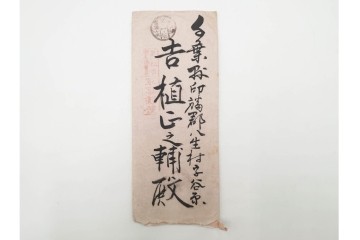 千葉縣印旛郡八生村字谷
吉植正之輔殿